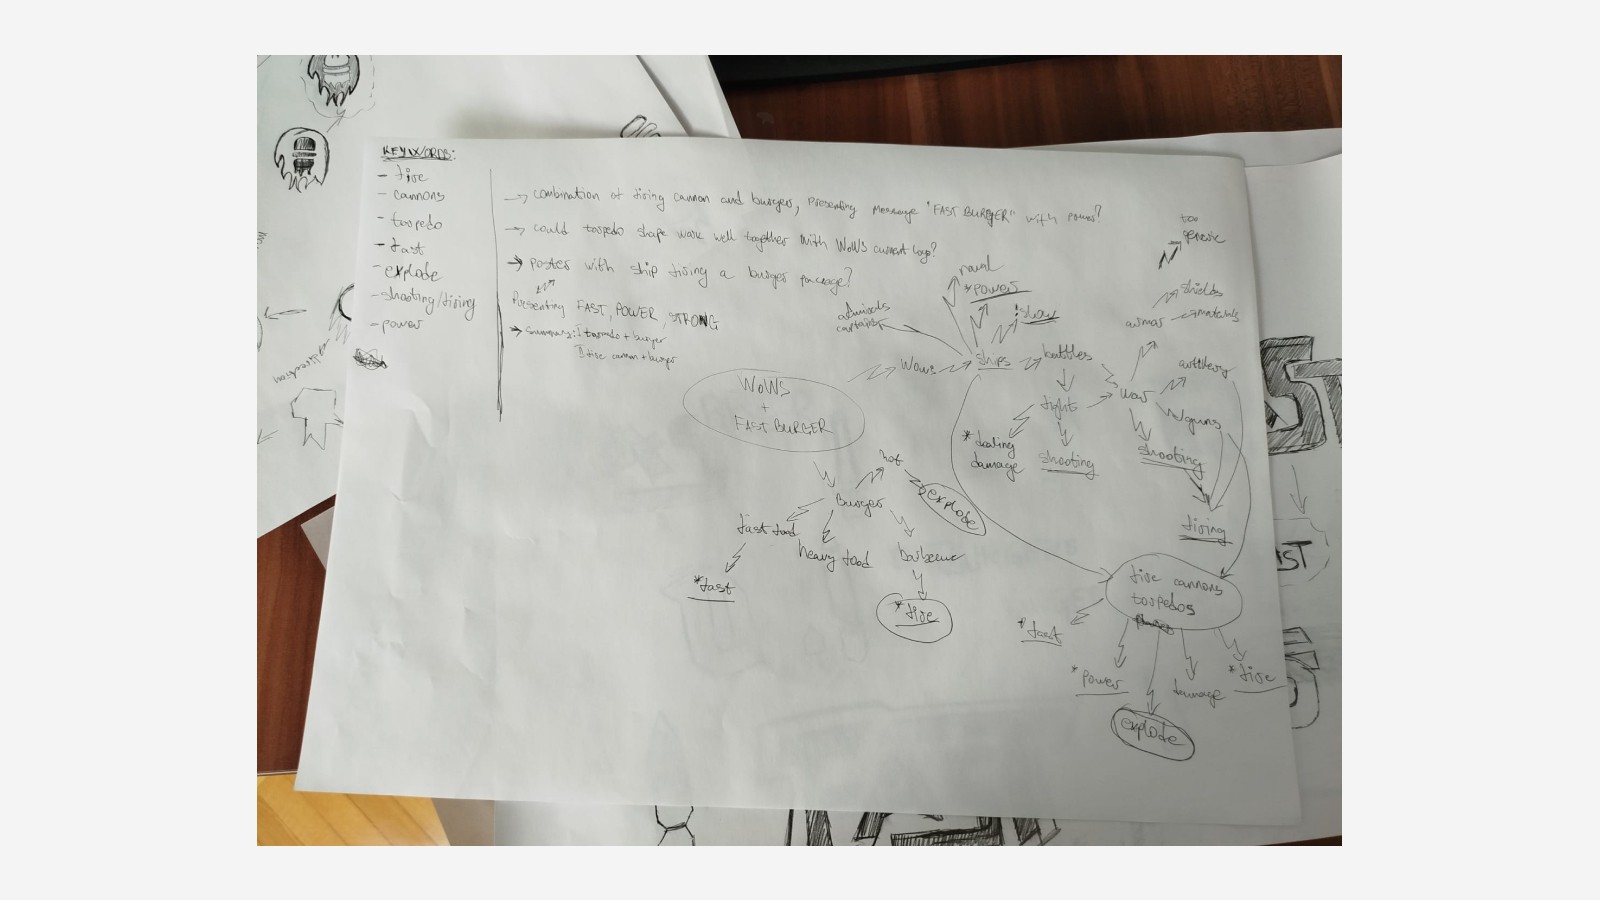 KEYWORDS:
- fire
- cannons
- torpedo
- fast
- explode
- shooting/firing
- power
→ combination of firing cannon and burgers, presenting message "FAST BURGER" with power?
→ could torpedo shape work well together with WoWS current logo?
→ poster with ship firing a burger package?
Presenting FAST, POWER, STRONG
→ Summary: I torpedo + burger
II fire cannon + burger
WoWS
+
FAST BURGER
WoWs
ships
admirals
captains
naval
*power
slow
battles
fight
*dealing
damage
shooting
war
armor
shields
materials
too
generic
artillery
guns
shooting
firing
Burger
hot
explode
fast food
*fast
heavy food
barbecue
*fire
fire cannons
torpedos
*fast
*power
explode
damage
*fire
ST
AST